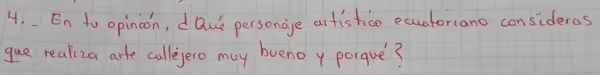 4._ En tu opinión, d Qué personaje artístico ecuatoriano consideras
que realiza arte callejero muy bueno y porqué?